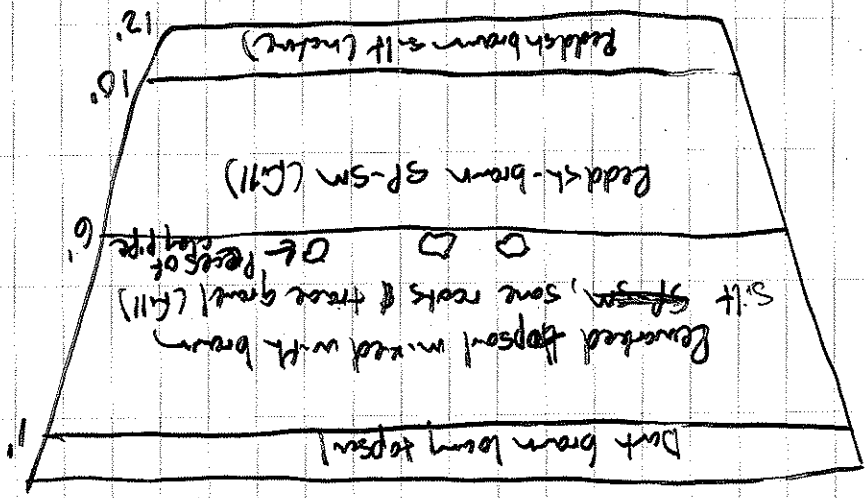 Dark brown loamy topsoil
1'
Reworked topsoil mixed with brown
silt SP-SM, some roots & trace gravel (fill)
Pieces of
clay pipe
6'
Reddish-brown SP-SM (fill)
10'
Reddish brown silt (native)
12'